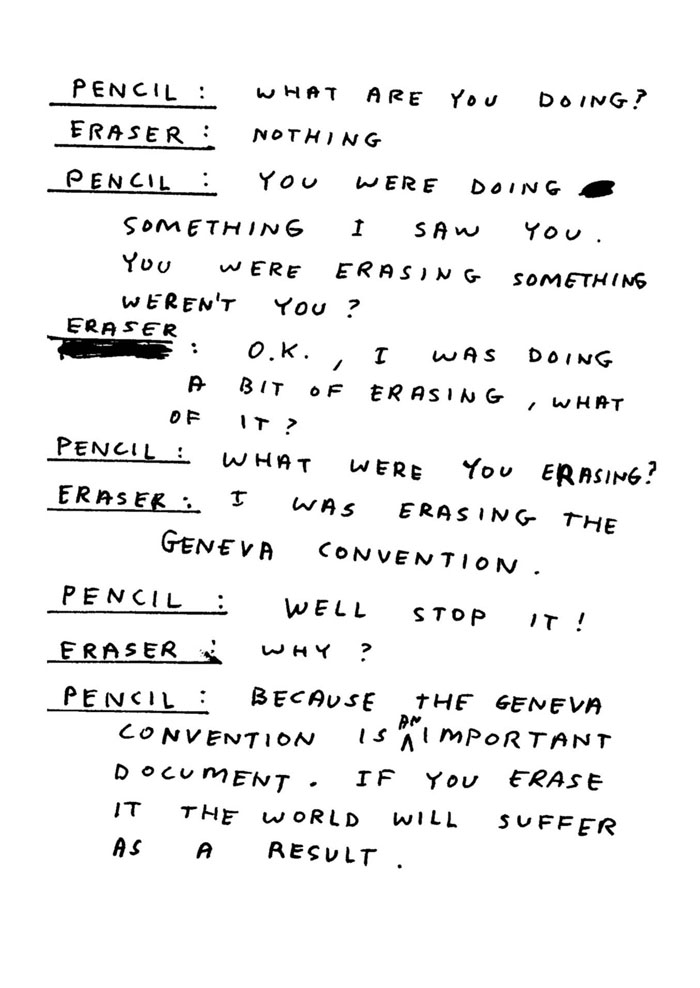 PENCIL : WHAT ARE YOU DOING?
ERASER : NOTHING
PENCIL : YOU WERE DOING
SOMETHING I SAW YOU.
YOU WERE ERASING SOMETHING
WEREN'T YOU?
ERASER
: O.K., I WAS DOING
A BIT OF ERASING, WHAT
OF IT?
PENCIL : WHAT WERE YOU ERASING?
ERASER : I WAS ERASING THE
GENEVA CONVENTION.
PENCIL : WELL STOP IT!
ERASER : WHY?
PENCIL : BECAUSE THE GENEVA
CONVENTION IS AN IMPORTANT
DOCUMENT. IF YOU ERASE
IT THE WORLD WILL SUFFER
AS A RESULT.